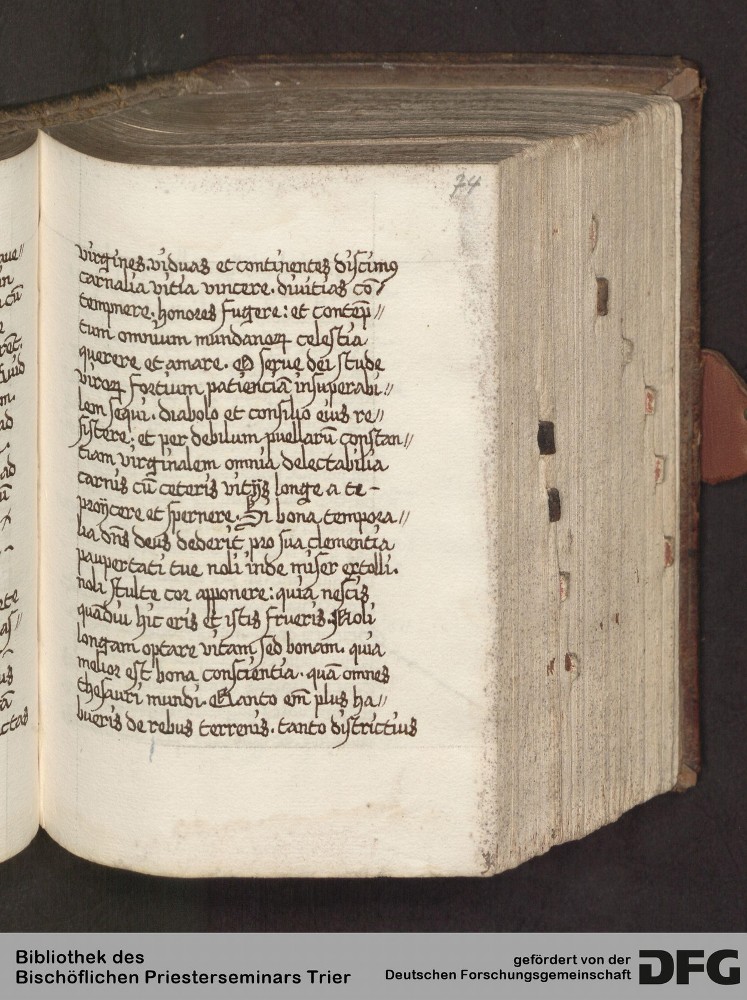 74
virgines, viduas et continentes discimꝰ
carnalia vitia vincere. divitias cō/
tempnere. honores fugere: et contēp//
tum omnium mundanoꝝ celestia
querere et amare. O serue dei stude
viroꝝ fortium patienciā insuperabi//
lem sequi. diabolo et consilio eius re//
sistere: et per debilum puellarū constan//
tiam virginalem omnia delectabilia
carnis cū ceteris vitijs longe a te -
proijcere et spernere. Si bona tempora//
lia dn̄s deus dederit pro sua clementia
paupertati tue noli inde miser extolli.
noli stulte cor apponere: quia nescis
quādiu hic eris et istis frueris. Noli
longam optare vitam sed bonam. quia
melior est bona conscientia. quā omnes
thesauri mundi. Quanto em̄ plus ha//
bueris de rebus terrenis. tanto districtius
Bibliothek des
Bischöflichen Priesterseminars Trier
gefördert von der
Deutschen Forschungsgemeinschaft
DFG